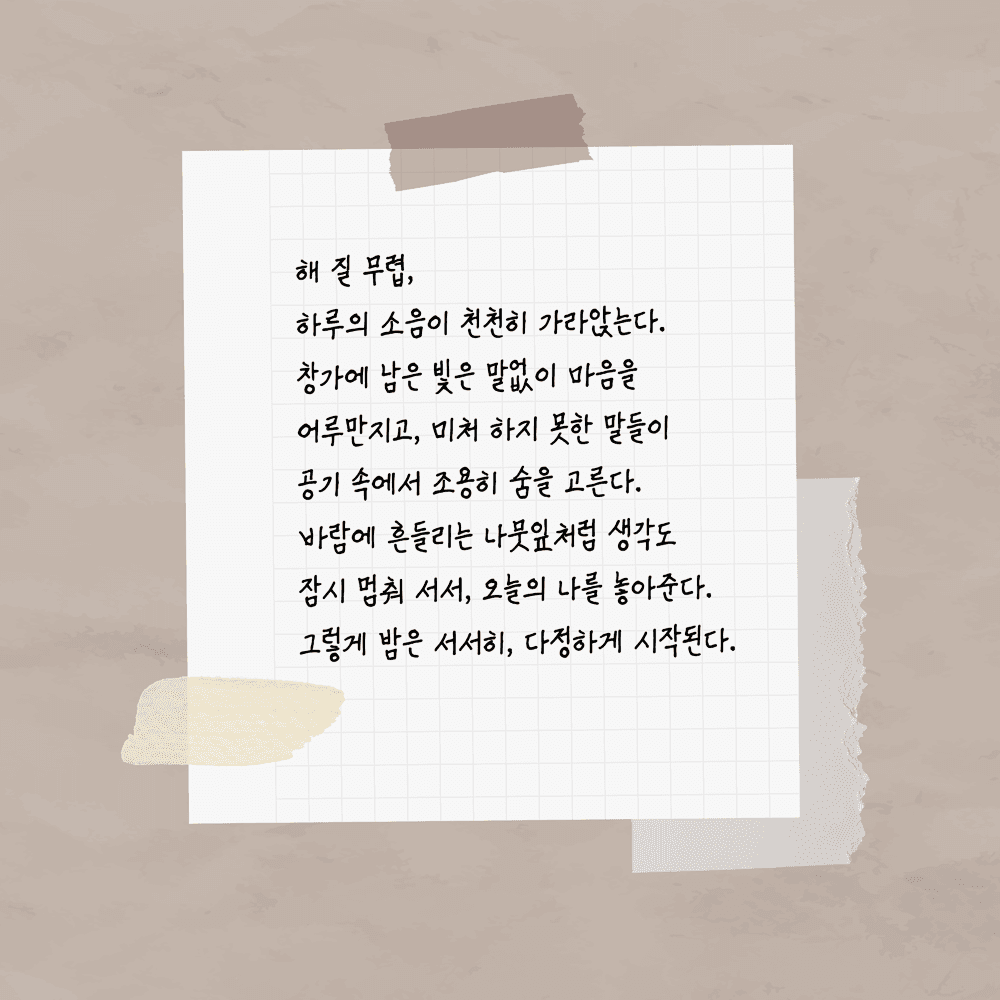 해 질 무렵,
하루의 소음이 천천히 가라앉는다.
창가에 남은 빛은 말없이 마음을
어루만지고, 미처 하지 못한 말들이
공기 속에서 조용히 숨을 고른다.
바람에 흔들리는 나뭇잎처럼 생각도
잠시 멈춰 서서, 오늘의 나를 놓아준다.
그렇게 밤은 서서히, 다정하게 시작된다.